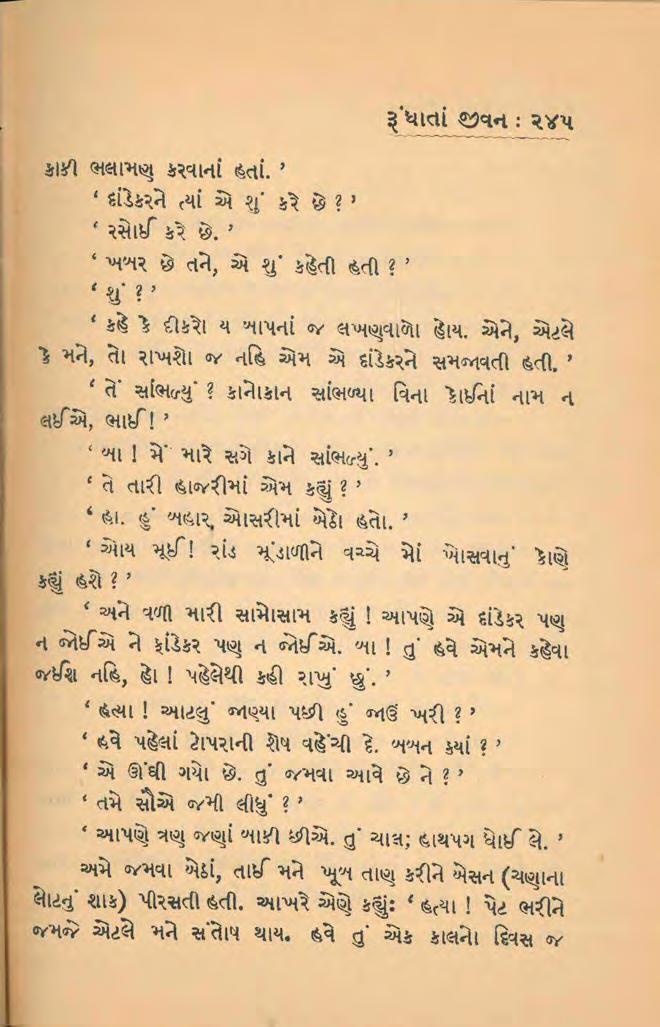 રૂંધાતાં જીવન : ૨૪૫
કાકી ભલામણ કરવાનાં હતાં. ’
‘ દાંડેકરને ત્યાં એ શું કરે છે ? ’
‘ રસોઈ કરે છે. ’
‘ ખબર છે તને, એ શું કહેતી હતી ? ’
‘ શું ? ’
‘ કહે કે દીકરો ય બાપનાં જ લખણવાળો હોય. એને, એટલે
કે મને, તો રાખશો જ નહિ એમ એ દાંડેકરને સમજાવતી હતી. ’
‘ તેં સાંભળ્યું ? કાનોકાન સાંભળ્યા વિના કોઈનાં નામ ન
લઈએ, ભાઈ ! ’
‘ બા ! મેં મારે સગે કાને સાંભળ્યું. ’
‘ તે તારી હાજરીમાં એમ કહ્યું ? ’
‘ હા. હું બહાર ઓસરીમાં બેઠો હતો. ’
‘ ઓય મૂઈ ! રાંડ મૂંડાળીને વચ્ચે મોં ખોસવાનું કોણે
કહ્યું હશે ? ’
‘ અને વળી મારી સામોસામ કહ્યું ! આપણે એ દાંડેકર પણ
ન જોઈએ ને ફાંડેકર પણ ન જોઈએ. બા ! તું હવે એમને કહેવા
જઈશ નહિ, હો ! પહેલેથી કહી રાખું છું. ’
‘ હત્યા ! આટલું જાણ્યા પછી હું જાઉં ખરી ? ’
‘ હવે પહેલાં ટોપરાની શેષ વહેંચી દે. બબન કયાં ? ’
‘ એ ઊંઘી ગયો છે. તું જમવા આવે છે ને ? ’
‘ તમે સૌએ જમી લીધું ? ’
‘ આપણે ત્રણ જણાં બાકી છીએ. તું ચાલ; હાથપગ ધોઈ લે. ’
અમે જમવા બેઠાં, તાઈ મને ખૂબ તાણ કરીને બેસન (ચણાના
લોટનું શાક) પીરસતી હતી. આખરે એણે કહ્યુંઃ ‘ હત્યા ! પેટ ભરીને
જમજે એટલે મને સંતોષ થાય. હવે તું એક કાલનો દિવસ જ